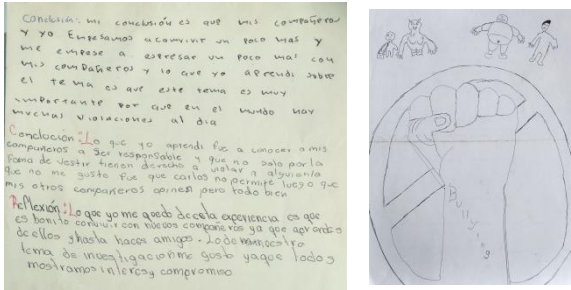 Conclusión: mi conclusión es que mis compañeros
y yo Empesamos aconvivir un poco mas y
me empese a espresar un poco mas con
mis compañeros y lo que yo aprendi sobre
el tema es que este tema es muy
importante por que en el mundo hay
muchas violaciones al dia
Conclución: Lo que yo aprendi fue a conocer a mis
compañeros a ser responsable y que no solo por la
foma de vestir tienen derecho a violar a alguien lo
que no me gusto fue que carlos no permite luego que
mis otros compañeros opinen pero todo bien
Reflexión: Lo que yo me quedo de esta experiencia es que
es bonito convivir con nuevos compañeros ya que aprendes
de ellos y hasta haces amigos. Lo de nuestro
tema de investigación me gusto ya que todos
mostramos interes y compromiso
Bullying